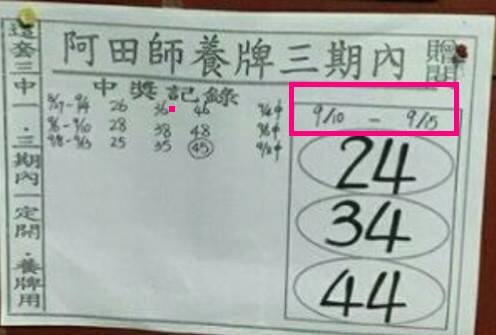 阿田師養牌三期內
贈閱
這套三中一．三期內一定開．養牌用
中獎記錄
8/27-9/4 26 36 46 9/4中
9/6-9/10 28 38 48 9/8中
9/8-9/13 25 35 45 9/12中
9/10 - 9/15
24
34
44